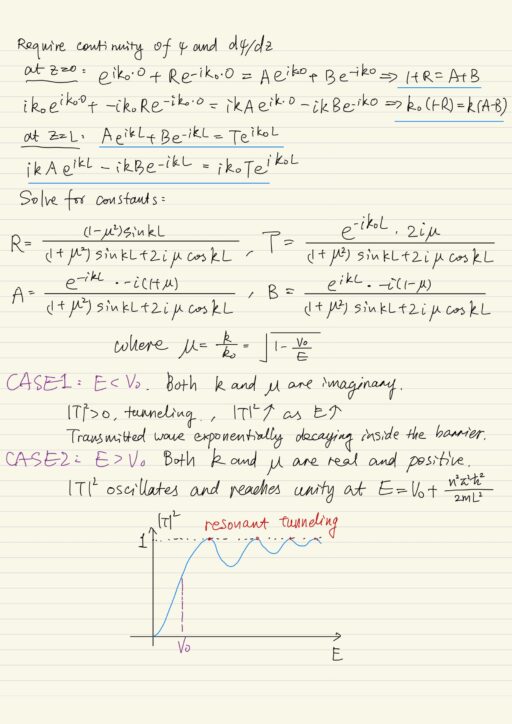 Require continuity of ψ and dψ/dz
at z=0: e^{ik₀·0} + Re^{-ik₀·0} = Ae^{ik0} + Be^{-ik0} ⇒ 1+R = A+B
ik₀e^{ik₀·0} + -ik₀Re^{-ik₀·0} = ikAe^{ik·0} - ikBe^{-ik0} ⇒ k₀(1+R) = k(A-B)
at z=L: Ae^{ikL} + Be^{-ikL} = Te^{ik₀L}
ikAe^{ikL} - ikBe^{-ikL} = ik₀Te^{ik₀L}
Solve for constants:
R = (1-μ²)sinkL / (1+μ²)sinkL+2iμcoskL , T = e^{-ik₀L}·2iμ / (1+μ²)sinkL+2iμcoskL
A = e^{-ikL}·-i(1+μ) / (1+μ²)sinkL+2iμcoskL , B = e^{ikL}·-i(1-μ) / (1+μ²)sinkL+2iμcoskL
where μ = k/k₀ = √(1 - V₀/E)
CASE1: E<V₀. Both k and μ are imaginary.
|T|²>0, tunneling, |T|²↑ as E↑
Transmitted wave exponentially decaying inside the barrier.
CASE2: E>V₀ Both k and μ are real and positive.
|T|² oscillates and reaches unity at E = V₀ + n²π²ħ²/2mL²
|T|² resonant tunneling
1
V₀
E